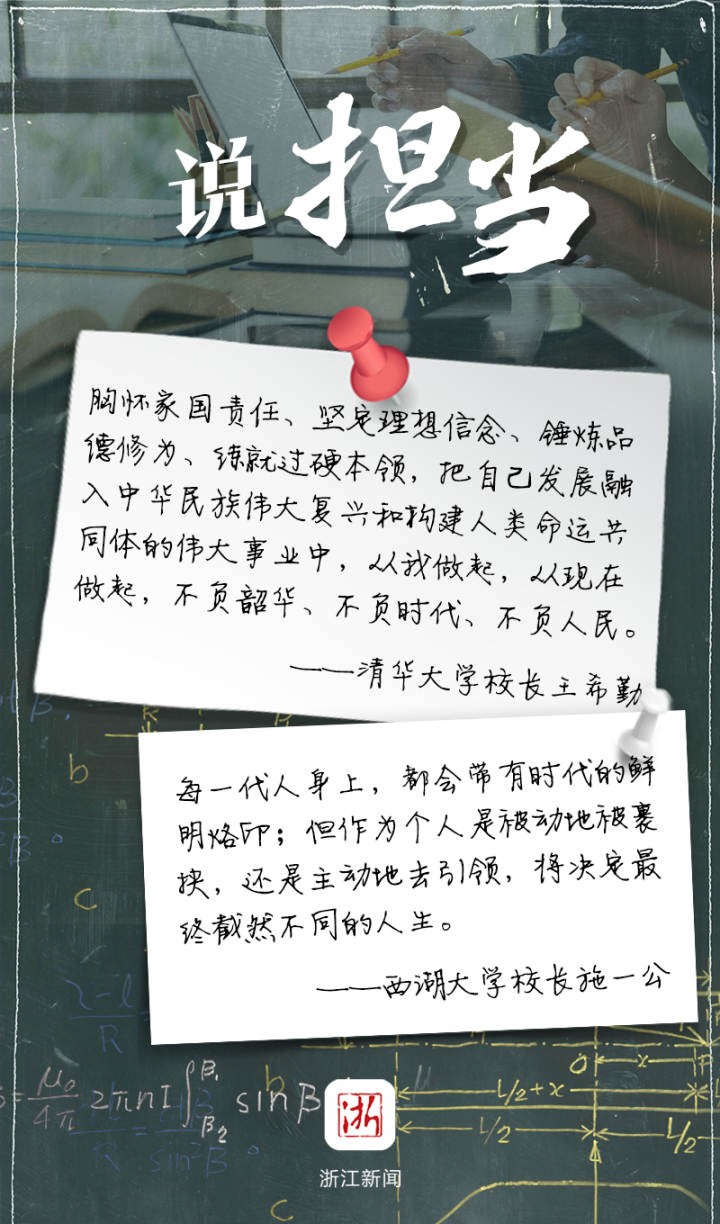 说担当
胸怀家国责任、坚定理想信念、锤炼品
德修为、练就过硬本领，把自己发展融
入中华民族伟大复兴和构建人类命运共
同体的伟大事业中，从我做起，从现在
做起，不负韶华、不负时代、不负人民。
——清华大学校长王希勤
每一代人身上，都会带有时代的鲜
明烙印；但作为个人是被动地被裹
挟，还是主动地去引领，将决定最
终截然不同的人生。
——西湖大学校长施一公
b
c
R
μ₀/4π 2πnI ∫β₁ β₂ sinβ
sin²β
O
x
L/2+x
L/2
L/2
浙
浙江新闻
c